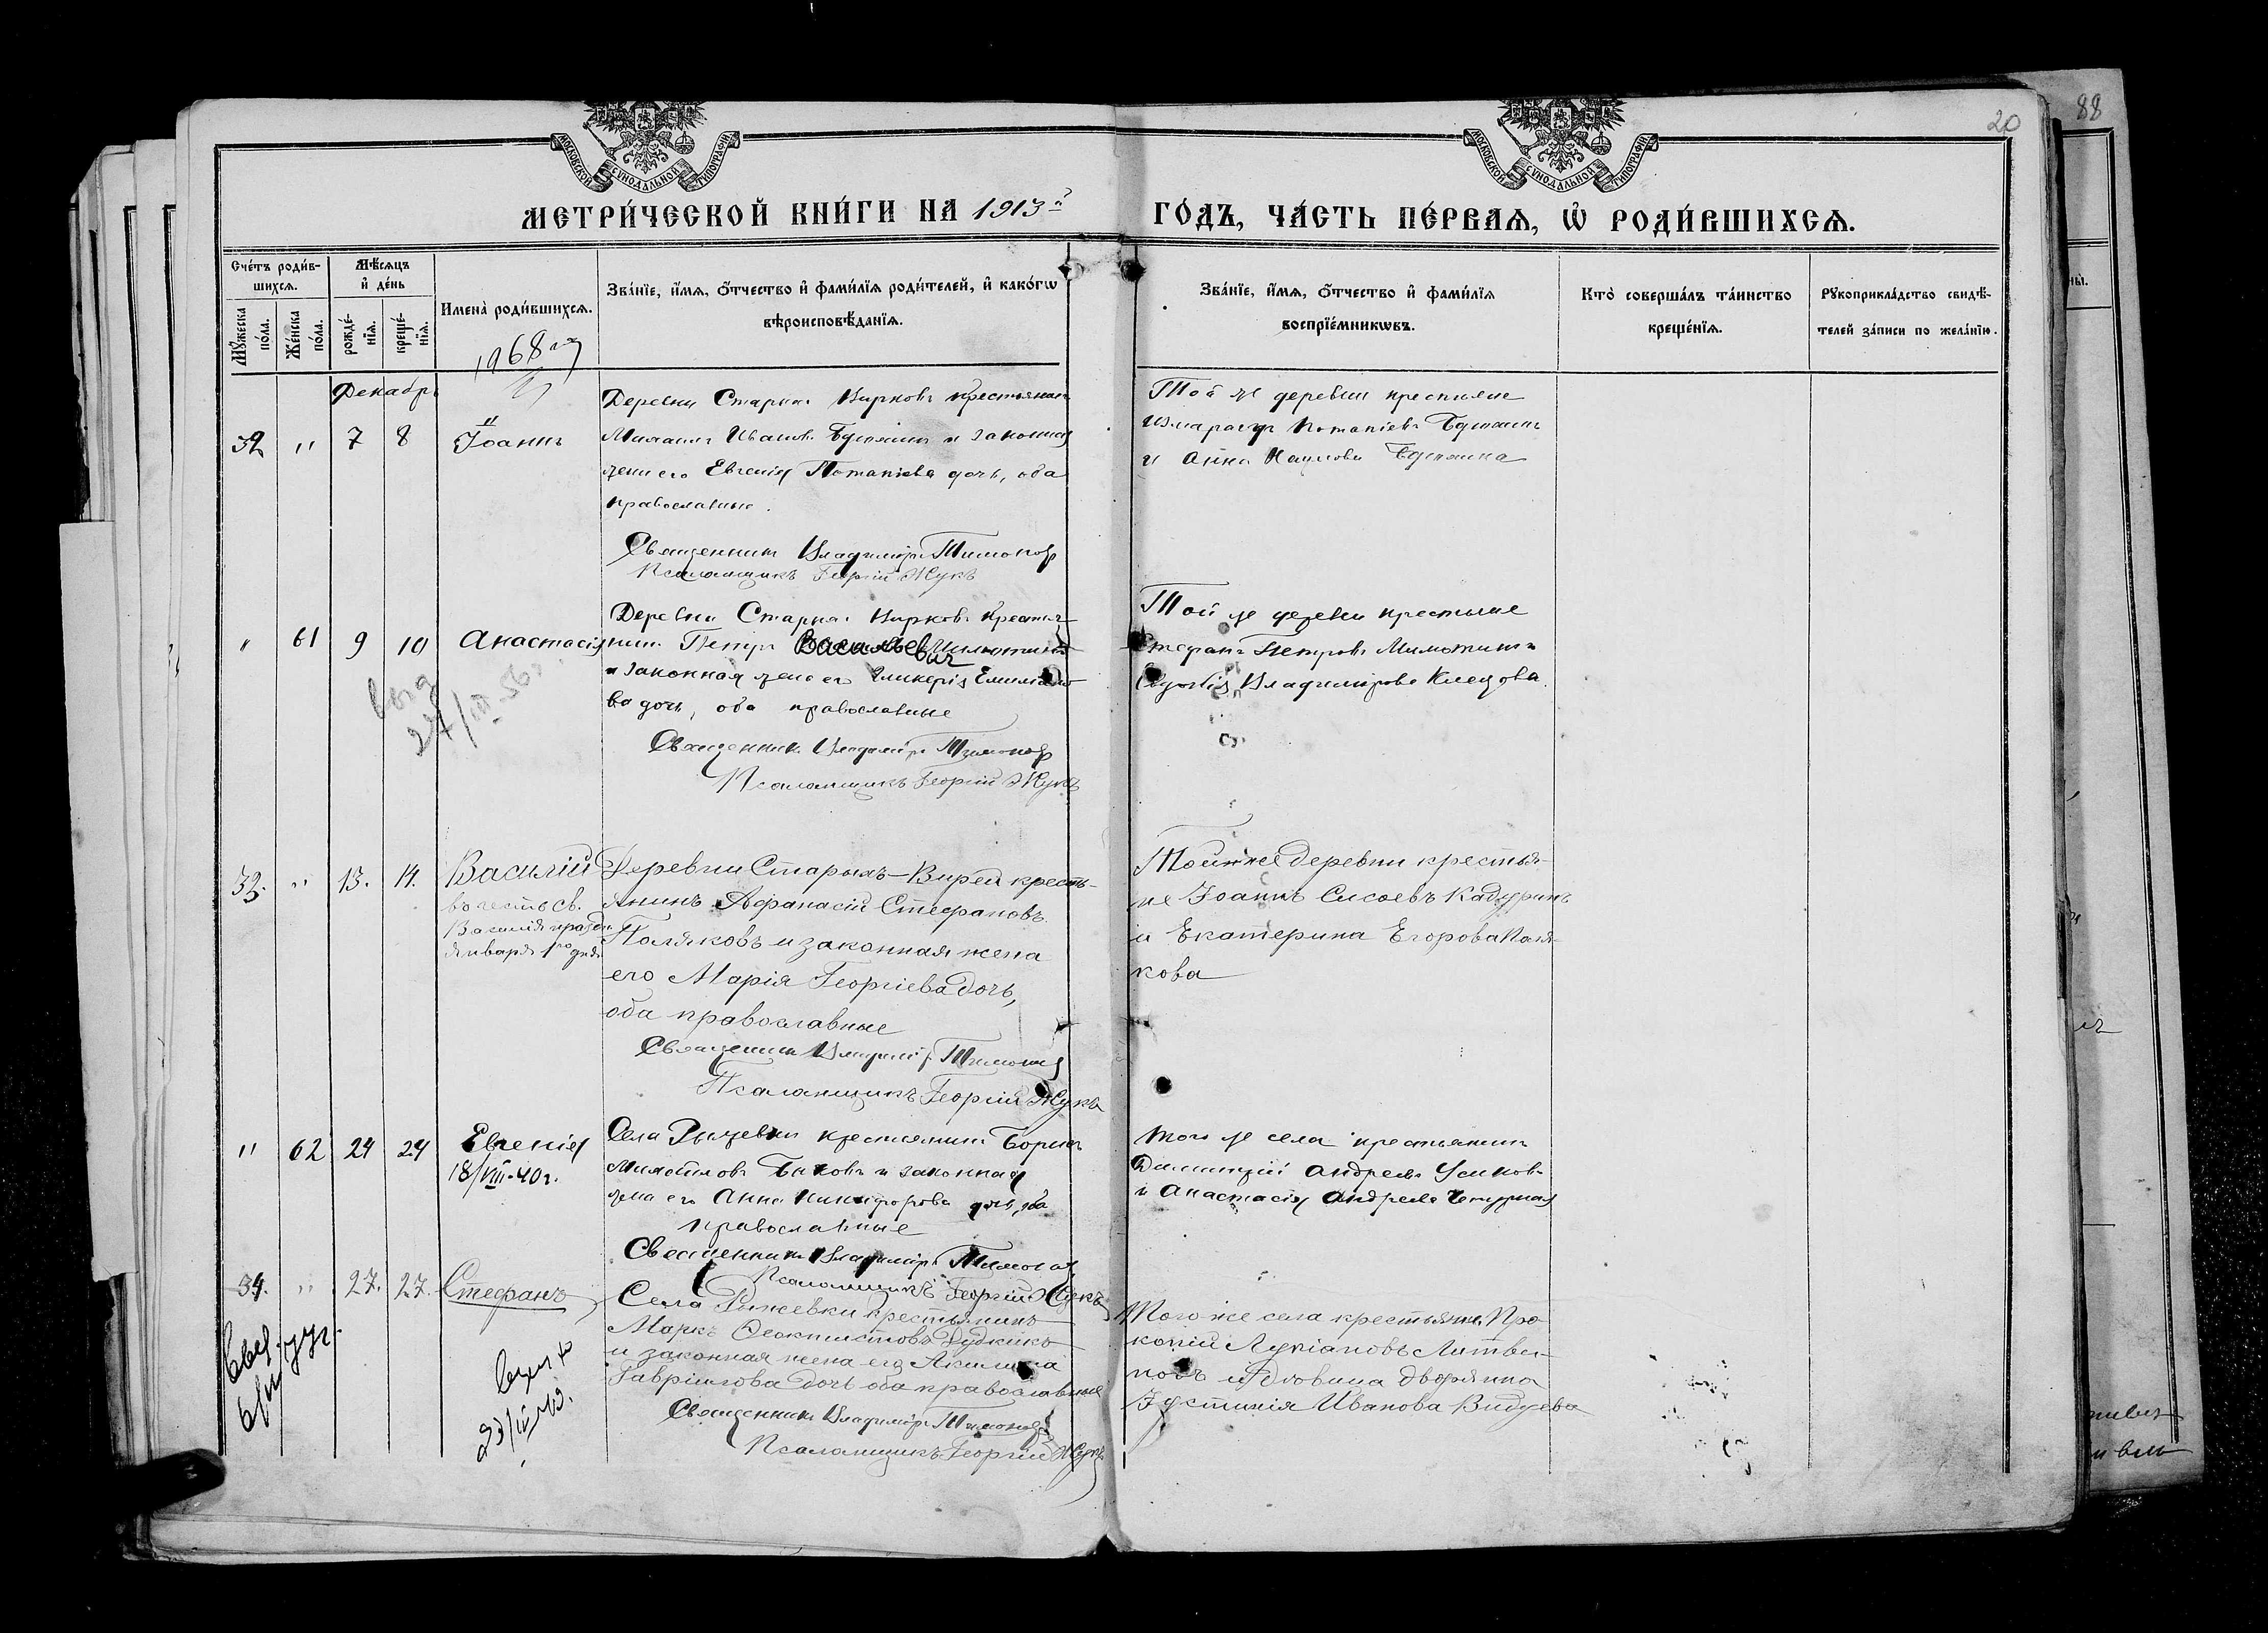 88
20
МОСКОВСКОЙ СѴНОДАЛЬНОЙ ТИПОГРАФІИ
МОСКОВСКОЙ СѴНОДАЛЬНОЙ ТИПОГРАФІИ
МЕТРИ́ЧЕСКОЙ КНИ́ГИ НА 1913й ГО́ДЪ, ЧА́СТЬ ПЕ́РВАѦ, Ѡ҆ РОДИ́ВШИХСѦ.
Сче́тъ роди́в-
шихсѧ.
Мꙋ́жеска по́ла.
Же́нска по́ла.
Мѣ́сѧцъ
и҆ де́нь
рожде́-
нїѧ.
креще́-
нїѧ.
Имена̀ роди́вшихсѧ.
1968
Зва́нїе, и҆́мѧ, о҆́тчество и҆ фами́лїѧ роди́телей, и҆ како́гѡ
вѣроисповѣ́данїѧ.
Зва́нїе, и҆́мѧ, о҆́тчество и҆ фами́лїѧ
воспрїе́мникѡвъ.
Кто̀ соверша́лъ та́инство
креще́нїѧ.
Рꙋкоприкла́дство свидѣ́-
телей за́писи по жела́нїю.
Декабрь
32 " 7 8 Іоаннъ
Деревни Старыхъ Вирковъ крестьянинъ
Михаилъ Иванов и законная
жена его Евгенія Потапіева дочь, оба
православные.
Священникъ Владиміръ Тимоновъ
Псаломщикъ Георгій Жукъ
Той же деревни крестьяне
Измарагдъ Потапіевъ
и Анна Наумова
" 61 9 10 Анастасія
27/VII-56
Деревни Старыхъ Вирковъ крестья-
нинъ Петръ Васильевич Милютинъ
и законная жена его Гликерія Емиліано-
ва дочь, оба православные
Священникъ Владиміръ Тимоновъ
Псаломщикъ Георгій Жукъ
Той же деревни крестьяне
Стефанъ Петровъ Милютинъ и
Владимірова
32. " 13. 14. Василій
въ честь св.
Василія празд.
января 1го дня
Деревни Старыхъ-Вирей кресть-
янинъ Афанасій Стефановъ
Поляковъ и законная жена
его Марія Георгіева дочь,
оба православные
Священникъ Владиміръ Тимоновъ
Псаломщикъ Георгій Жукъ
Той же деревни крестья-
не Іоаннъ Сисоевъ Кадуринъ
и Екатерина Егорова Поля-
кова
" 62 24 24 Евгенія
18/VIII-40г.
Села Рыжевки крестьянинъ Борисъ
Михайловъ Быковъ и законная
жена его Анна Никифорова дочь, оба
православные
Священникъ Владиміръ Тимоновъ
Псаломщикъ Георгій Жукъ
Того же села крестьянинъ
Димитрій Андреевъ Усиковъ
и Анастасія Андреева
34. " 27. 27. Стефанъ
Села Рыжевки крестьянинъ
Маркъ Феоктистовъ Дудкинъ
и законная жена его Акилина
Гавріилова дочь оба православные
Священникъ Владиміръ Тимоновъ
Псаломщикъ Георгій Жукъ
Того же села крестьяне Про-
копій Лукіановъ Литви-
новъ и вдовица дворянка
Іустинія Иванова Видуева